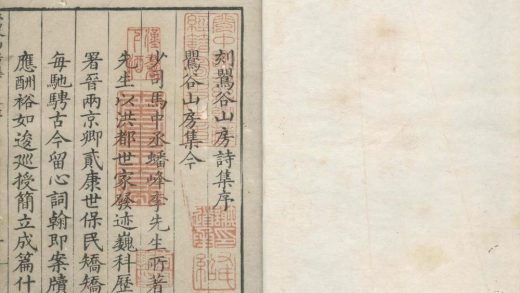 刻鸎谷山房詩集序
鸎谷山房集今
少司馬中丞蟠峰李先生所著
先生以洪都世家發迹巍科歷
署晉兩京卿貳康世保民矯矯
每馳騁古今留心詞翰即案牘
應酬裕如逡巡授簡立成篇什